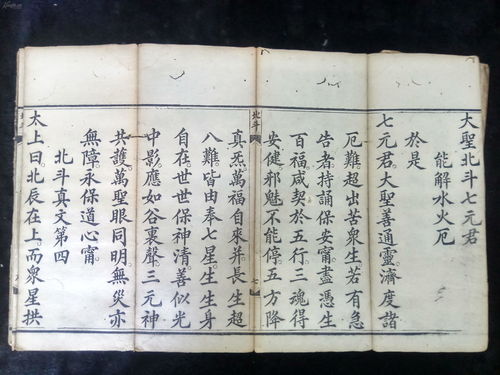 大聖北斗七元君
能解水火厄
於是
七元君大聖善通靈濟度諸
厄難超出苦衆生若有急
告者持誦保安甯盡憑生
百福咸契於五行三魂得
安健邪魅不能停五方降
北斗
七
真炁萬福自來并長生超
八難皆由奉七星生生身
自在世世保神清善似光
中影應如谷裏聲三元神
共護萬聖眼同明無災亦
無障永保道心甯
北斗真文第四
太上曰北辰在上而衆星拱